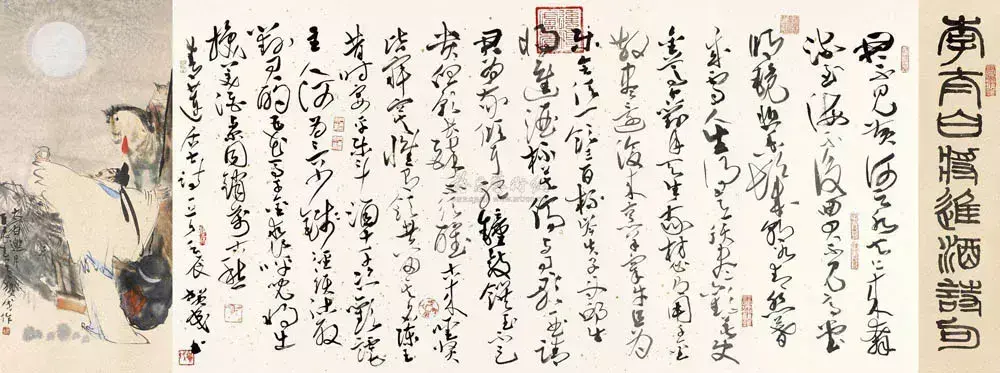 李太白將進酒詩句
君不見黃河之水天上來奔
流到海不復回君不見高堂
明鏡悲白髮朝如青絲暮
成雪人生得意須盡歡莫使
金尊對月天生我材必有用千金
散盡還復來烹羊宰牛且為
樂會須一飲三百杯岑夫子丹丘生
將進酒杯莫停與君歌一曲請
君為我傾耳聽鐘鼓饌玉不足
貴但願長醉不復醒古來聖賢
皆寂寞惟有飲者留其名陳王
昔時宴平樂斗酒十千恣歡謔
主人何為言少錢徑須沽取
對君酌五花馬千金裘呼兒將出
換美酒與爾同銷萬古愁
詩 壬辰 書